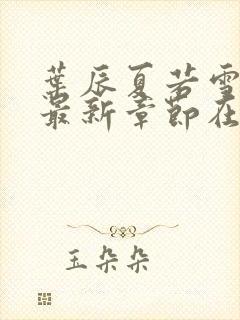 葉辰夏若雪
最新章節在
玉朵朵